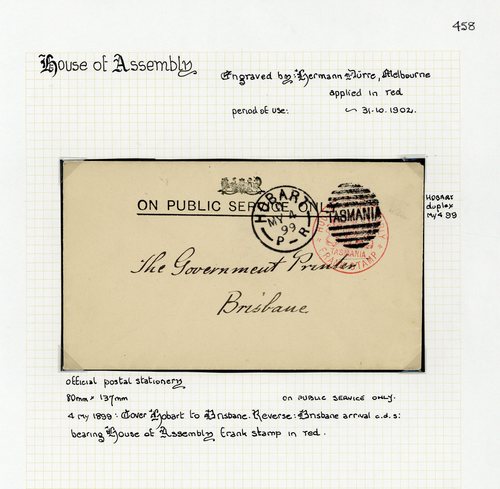 458
House of Assembly
Engraved by: Hermann Dürre, Melbourne
applied in red
period of use: ~ 31.10.1902.
ON PUBLIC SERVICE ONLY
HOBART
MY 4
99
P R
TASMANIA
TASMANIA
FRANK STAMP
HOBART
duplex
My 4 99
The Government Printer
Brisbane
official postal stationery
80mm × 137mm
ON PUBLIC SERVICE ONLY.
4 my 1899: Cover Hobart to Brisbane. Reverse: Brisbane arrival c.d.s:
bearing House of Assembly frank stamp in red.